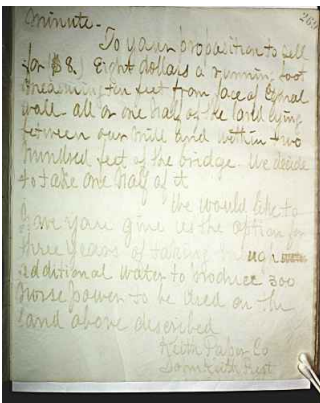 269
minute -
To your proposition to sell
for $8. Eight dollars a running foot
measuring ten feet from face of Canal
wall all or one half of the land lying
between our mill and within two
hundred feet of the bridge. We decide
to take one half of it
We would like to
have you give us the option for
three years of taking much
additional water to produce 300
horse power to be used on the
land above described
Keith Paper Co
John Keith Prest